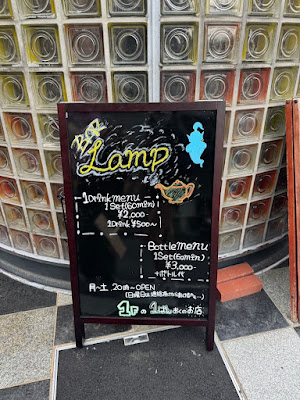 BAR
Lamp
1Drink menu
1Set(60min)
¥2,000
1Drink ¥500~
Bottle menu
1Set(60min)
¥3,000
+ボトル代
月~土 20時~OPEN
1Fの
お店